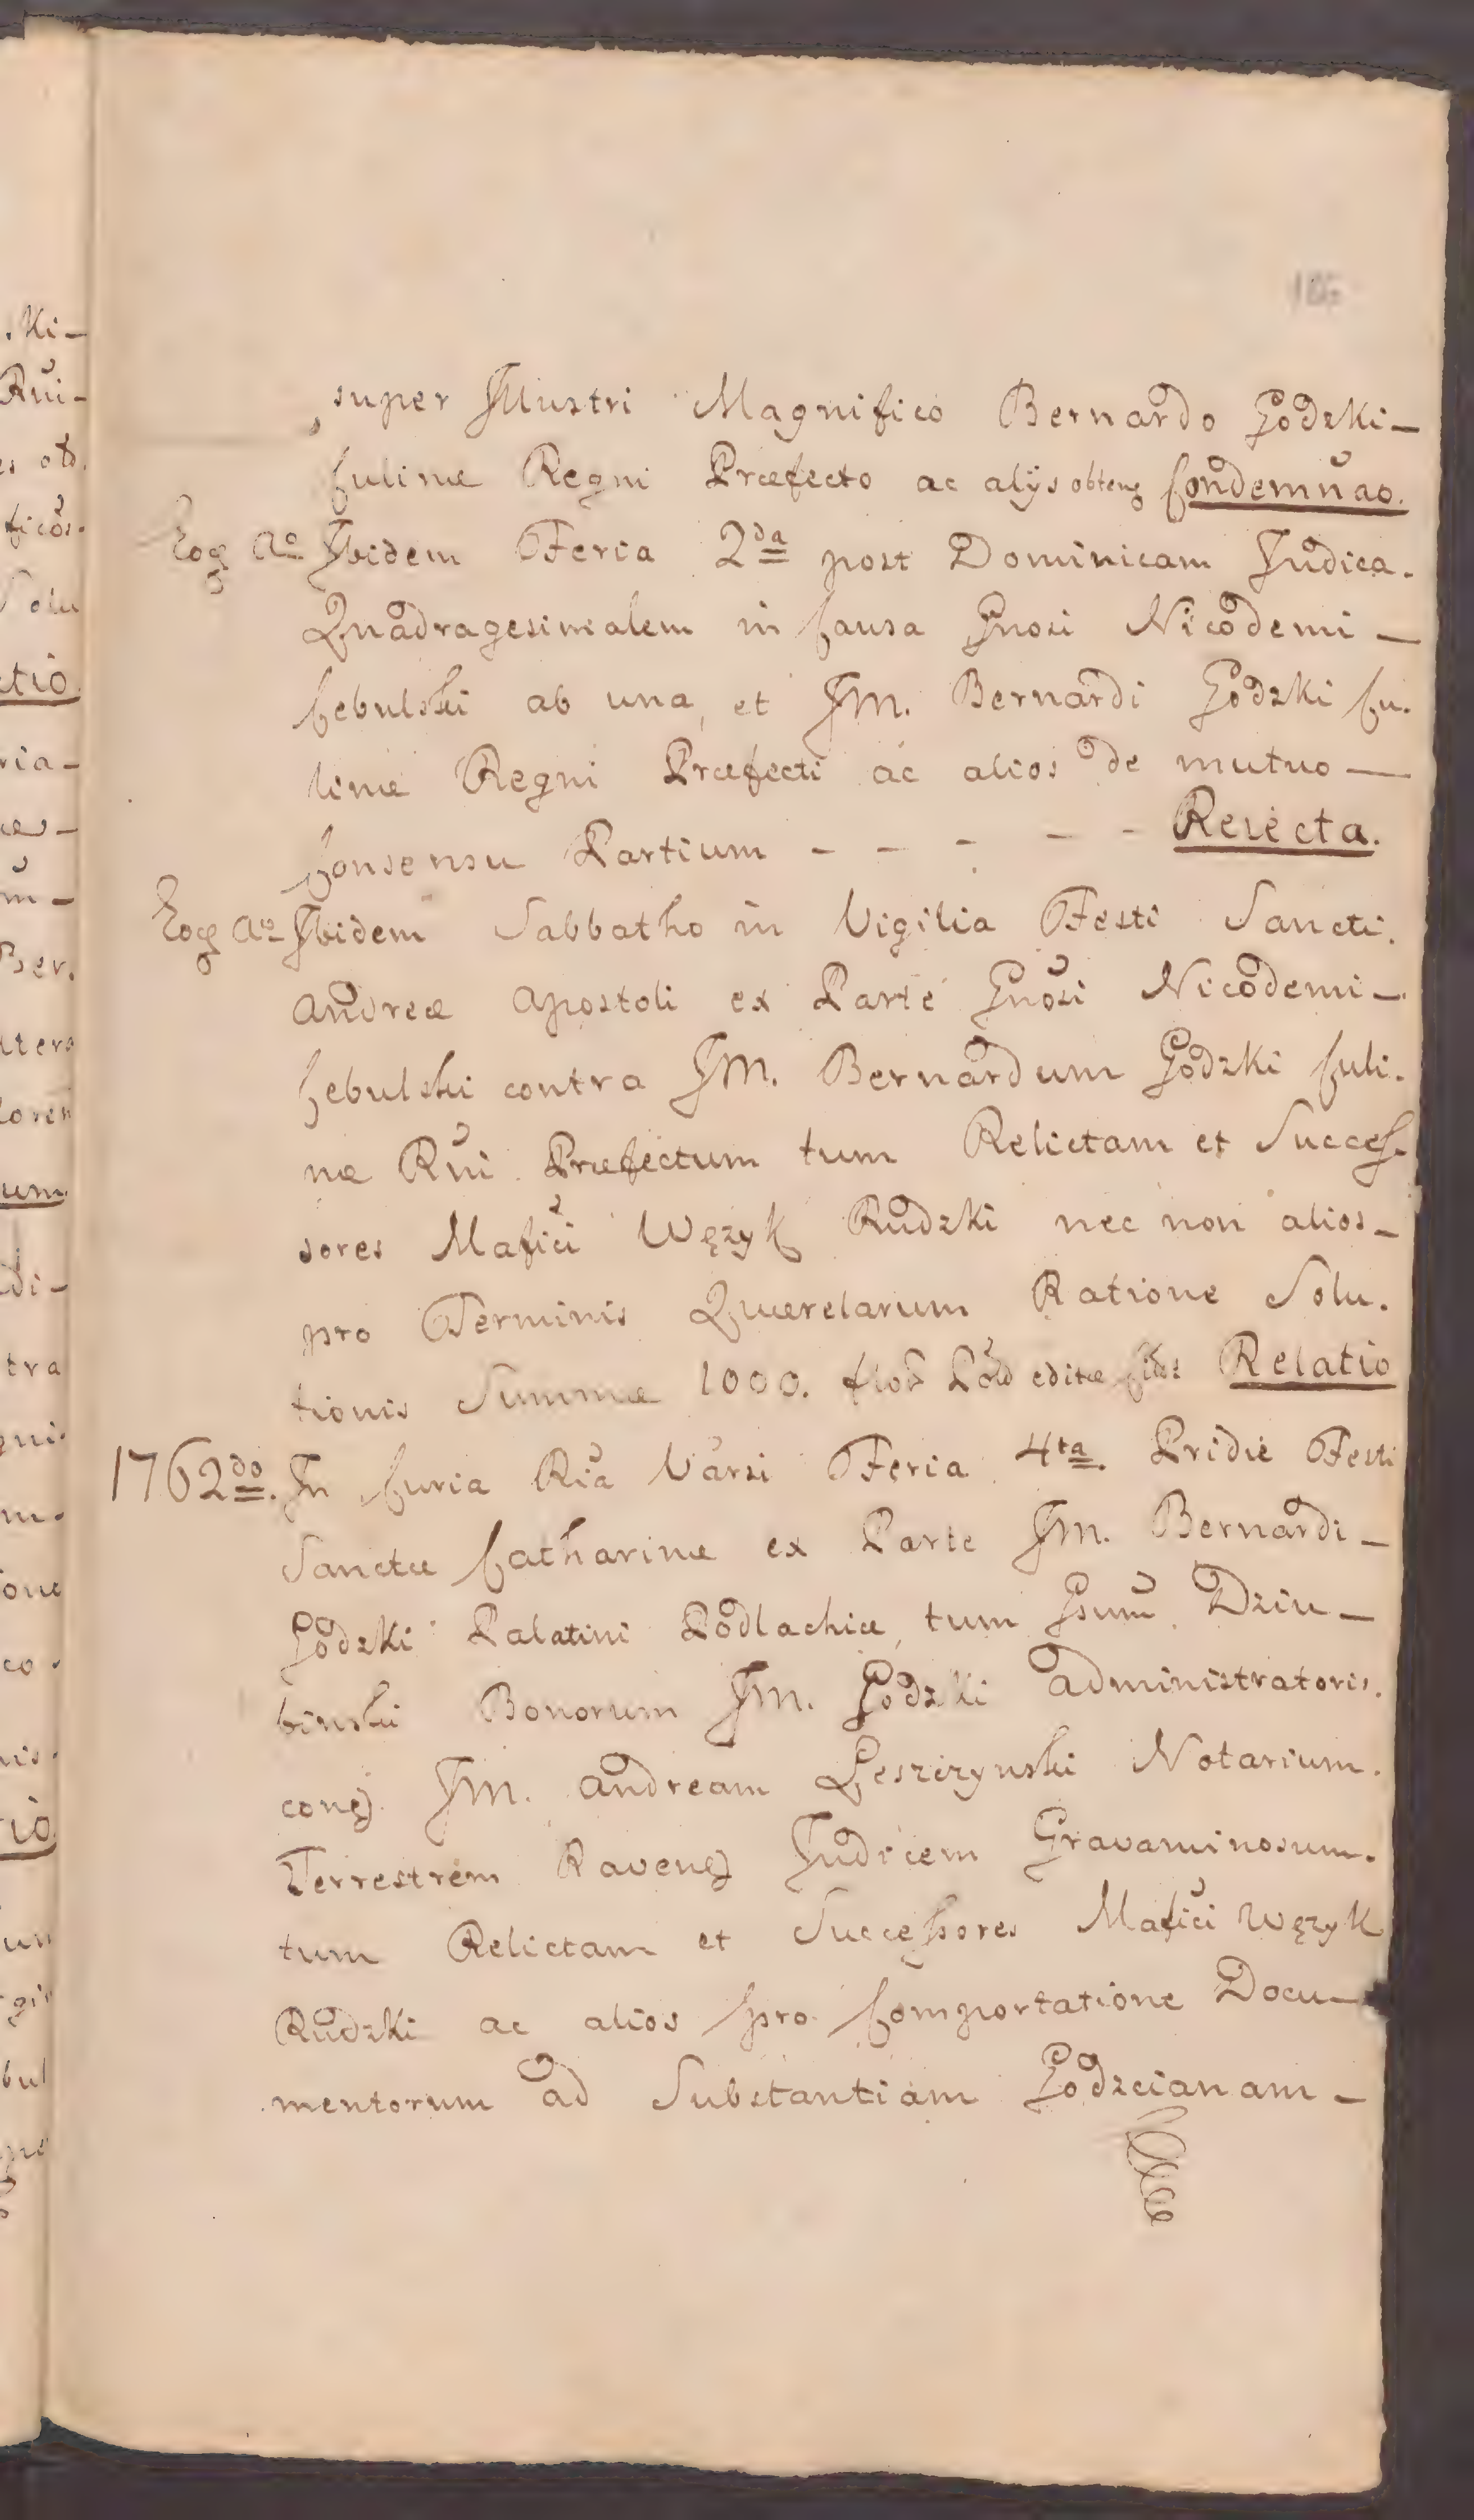 186
super Illustri Magnifico Bernardo Godzki –
Culinæ Regni Præfecto ac alijs obten͠ Condemnao.
Eoq̃ Aº Ibidem Feria 2da post Dominicam Judica.
Quadragesimalem in Causa Gnosi Nicodemi –
Cebulski ab una, et JM. Bernardi Godzki Cu.
linæ Regni Præfecti ac alios de mutuo –
Consensu Partium – – – – – Reiecta.
Eoq̃ Aº Ibidem Sabbatho in Vigilia Festi Sancti.
Andreæ Apostoli ex Parte Gnosi Nicodemi –
Cebulski contra JM. Bernardum Godzki Culi.
næ Rni Præfectum tum Relictam et Succes.
sores Mafici Węzyk Rudzki nec non alios –
pro Terminis Quærelarum Ratione Solu.
tionis Summæ 1000. flor Pol editæ Relatio
1762do. In Curia Ria Varsi Feria 4ta. Pridie Festi
Sanctæ Catharinæ ex Parte JM. Bernardi –
Godzki Palatini Podlachiæ, tum Gsum Dziu –
binski Bonorum JM. Godzki Administratoris.
con͠ JM. Andream Leszczynski Notarium.
Terrestrem Raven͠ Judicem Gravaminosum.
tum Relictam et Successores Mafici Węzyk
Rudzki ac alios pro Comportatione Docu –
mentorum ad Substantiam Godzcianam –